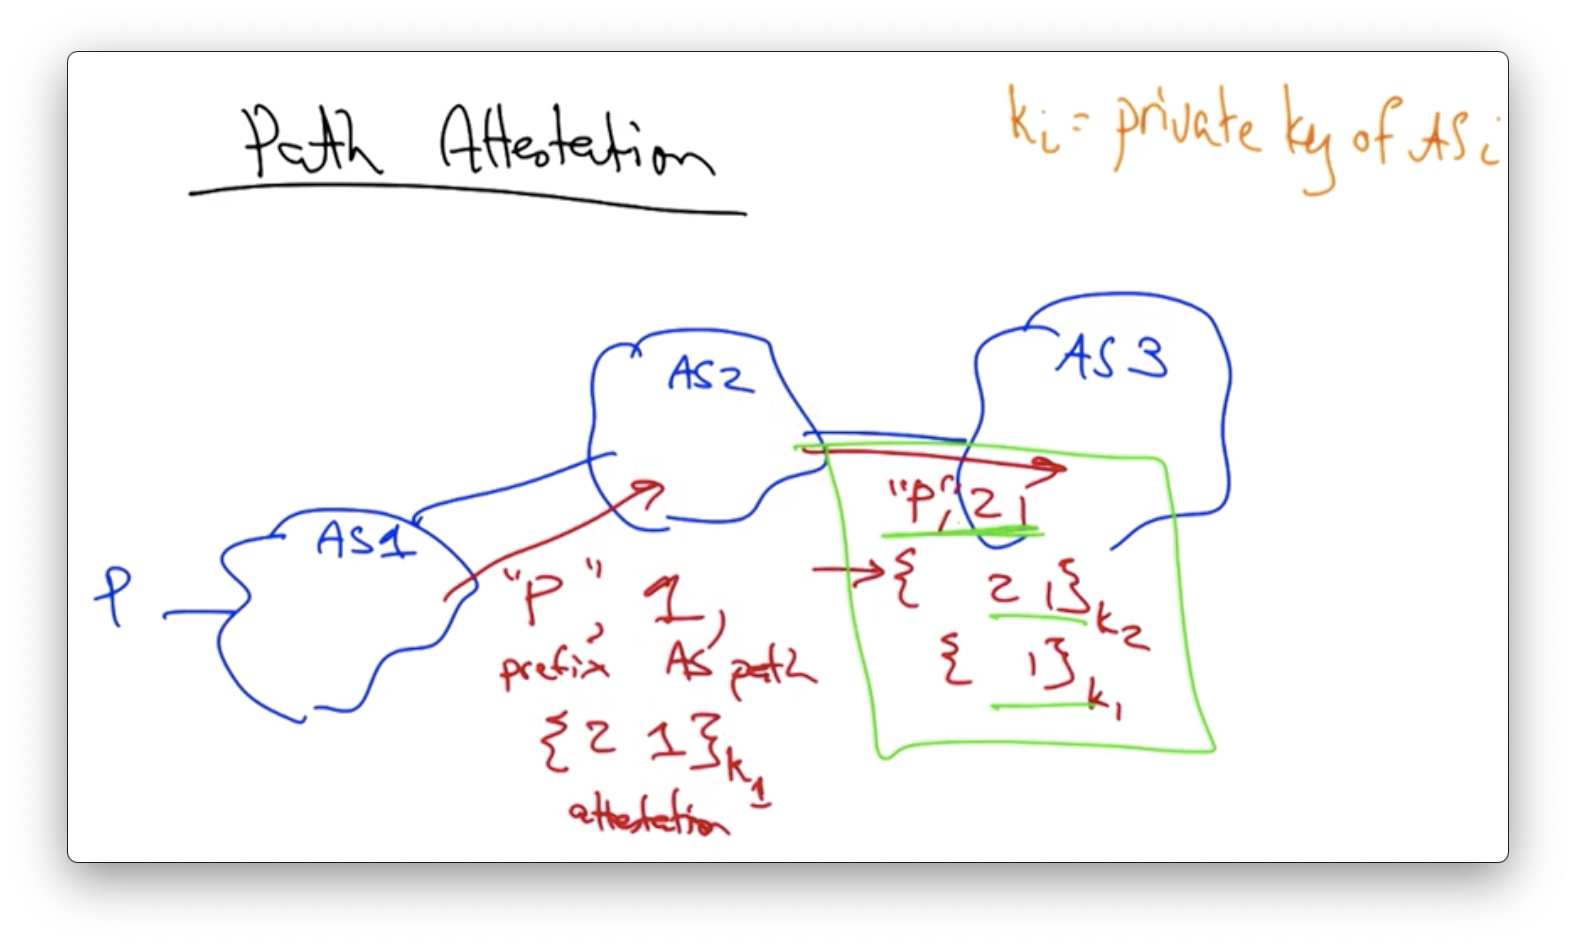 Path Attestation
ki = private ky of ASi
AS2
AS3
AS1
P
"P", 1,
prefix AS path
{2 1}k1
attestation
"P", 2 1
{ 2 1}k2
{ 1}k1